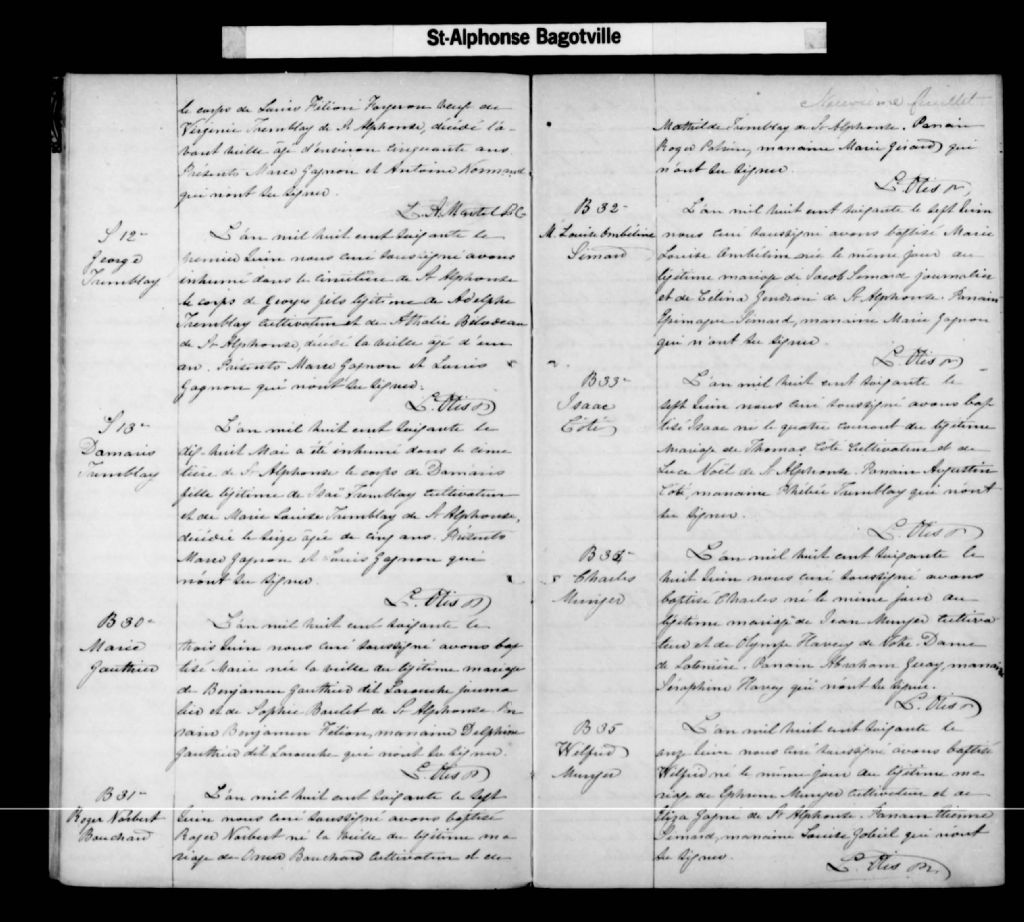 St-Alphonse Bagotville
le corps de Louis Filion Forgeron veuf de
Virginie Tremblay de St Alphonse, décédé l'a-
vant veille âgé d'environ cinquante ans
Présents Marce Gagnon et Antoine Normand
qui n'ont su signer.
L. A. Martel
S 12
George
Tremblay
L'an mil huit cent soixante le
premier Juin nous curé soussigné avons
inhumé dans le cimetière de St Alphonse
le corps de Georges fils légitime de Adolphe
Tremblay cultivateur et de Athalie Bilodeau
de St Alphonse, décédé la veille agé d'un
an. Présents Marce Gagnon et Louis
Gagnon qui n'ont su signer.
L. Otis
S 13
Damaris
Tremblay
L'an mil huit cent soixante le
dix huit Mai a été inhumé dans le cime
tière de St Alphonse le corps de Damaris
fille légitime de Isaï Tremblay cultivateur
et de Marie Louise Tremblay de St Alphonse,
décédée le seize agée de cinq ans. Présents
Marce Gagnon et Louis Gagnon qui
n'ont su signer.
L. Otis
B 30
Marie
Gauthier
L'an mil huit cent soixante le
trois Juin nous curé soussigné avons bap
tisé Marie née la veille du légitime mariage
de Benjamin Gauthier dit Larouche journa
lier et de Sophie Boulet de St Alphonse. Pa
rain Benjamin Filion, maraine Delphine
Gauthier dit Larouche qui n'ont su signer.
L. Otis
B 31
Roger Norbert
Bouchard
L'an mil huit cent soixante le sept
Juin nous curé soussigné avons baptisé
Roger Norbert né la veille du légitime ma
riage de Omer Bouchard cultivateur et de
Neuvième feuillet
Mathilde Tremblay de St Alphonse. Parain
Roger Potvin, maraine Marie Girard qui
n'ont su signer.
L. Otis
B 32
M. Louise Ombéline
Simard
L'an mil huit cent soixante le sept Juin
nous curé soussigné avons baptisé Marie
Louise Ombéline née le même jour du
légitime mariage de Jacob Simard journalier
et de Célina Gendron de St Alphonse. Parain
Epimaque Simard, maraine Marie Gagnon
qui n'ont su signer.
L. Otis
B 33
Isaac
Côté
L'an mil huit cent soixante le
sept Juin nous curé soussigné avons bap
tisé Isaac né le quatre courant du légitime
mariage de Thomas Côté cultivateur et de
Luce Noël de St Alphonse. Parain Augustin
Côté, maraine Phébée Tremblay qui n'ont
su signer.
L. Otis
B 34
Charles
Munger
L'an mil huit cent soixante le
huit Juin nous curé soussigné avons
baptisé Charles né le même jour du
légitime mariage de Jean Munger cultiva
teur et de Olympe Harvey de Notre Dame
de Laterière. Parain Abraham Guay, maraine
Séraphine Harvey qui n'ont su signer.
L. Otis
B 35
Wilfrid
Munger
L'an mil huit cent soixante le
onze Juin nous curé soussigné avons baptisé
Wilfrid né le même jour du légitime ma
riage de Ephrem Munger cultivateur et de
Eliza Gagné de St Alphonse. Parain Etienne
Simard, maraine Louise Gobeil qui n'ont
su signer.
L. Otis